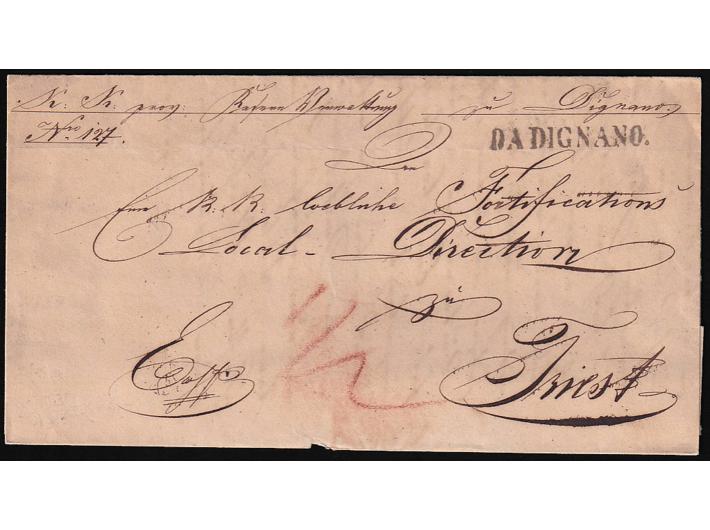 K: K: prov: Kasern Verwaltung zu Dignano.
Nro 127.
DA DIGNANO.
An
Eine K. K. loebliche Fortifications
Local-Direction
zu
Triest
1/2